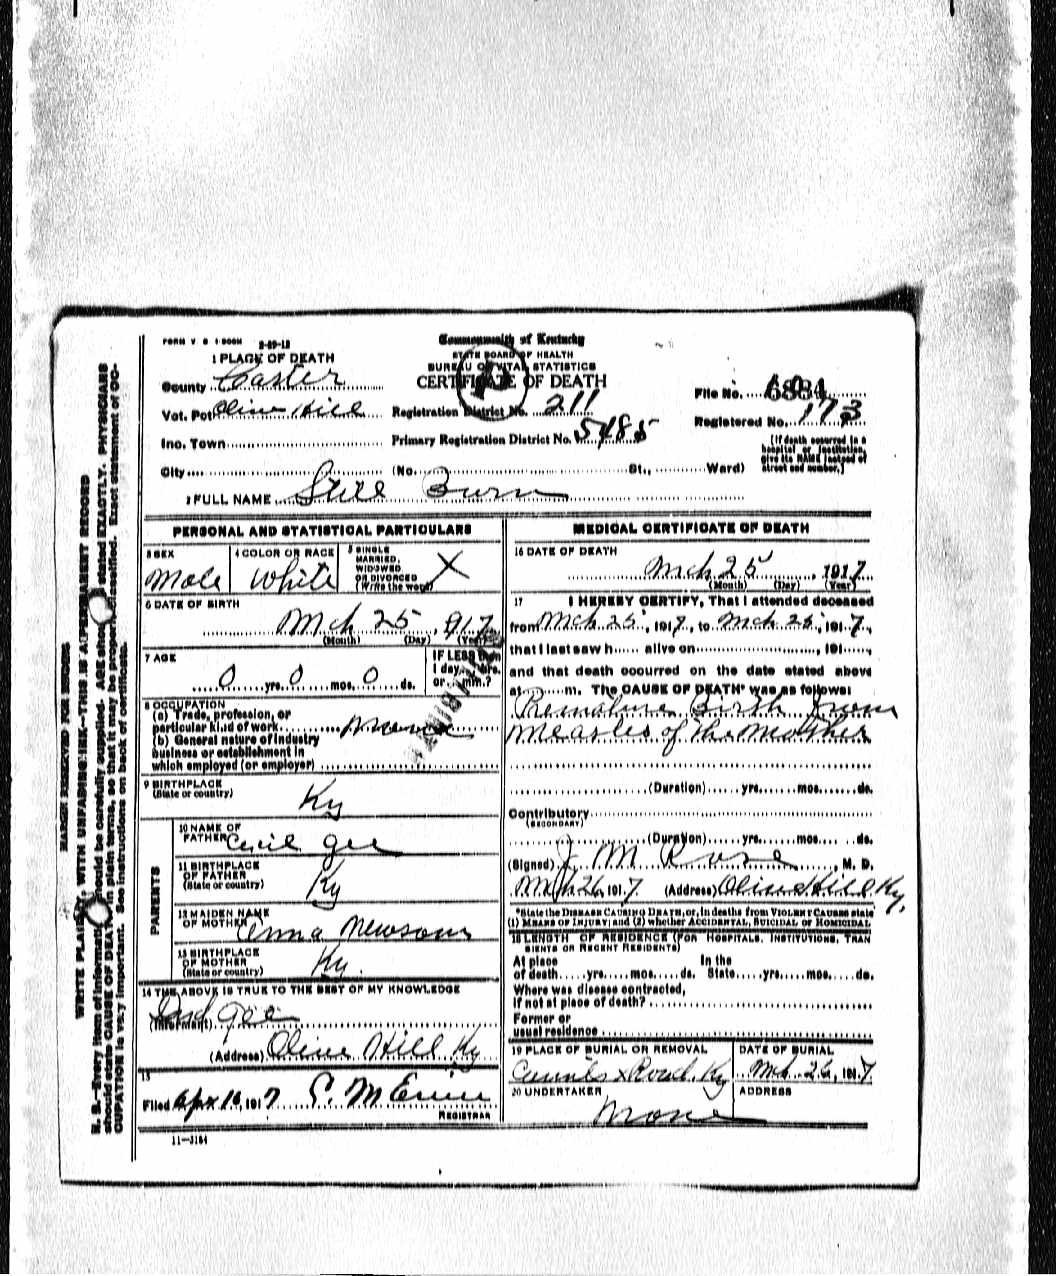 FORM V. S. 1-500M 2-29-12
Commonwealth of Kentucky
1 PLACE OF DEATH
STATE BOARD OF HEALTH
BUREAU OF VITAL STATISTICS
County Carter
CERTIFICATE OF DEATH
File No. 6884
Vot. Pct Olive Hill Registration District No. 211
Registered No. 173
Inc. Town Primary Registration District No. 5485
[If death occurred in a hospital or institution, give its NAME instead of street and number.]
City (No. St., Ward)
2 FULL NAME Still Born
PERSONAL AND STATISTICAL PARTICULARS
3 SEX
Male
4 COLOR OR RACE
White
5 SINGLE
MARRIED,
WIDOWED
OR DIVORCED
(Write the word)
X
6 DATE OF BIRTH
Mch 25, 917
(Month) (Day) (Year)
7 AGE
0 yrs. 0 mos. 0 ds.
IF LESS than
1 day, hrs.
or min.?
STILLBIRTH
8 OCCUPATION
(a) Trade, profession, or
particular kind of work
(b) General nature of industry
business or establishment in
which employed (or employer)
9 BIRTHPLACE
(State or country)
Ky
PARENTS
10 NAME OF
FATHER Cecil Gee
11 BIRTHPLACE
OF FATHER
(State or country)
Ky
12 MAIDEN NAME
OF MOTHER Anna Newsom
13 BIRTHPLACE
OF MOTHER
(State or country)
Ky.
14 THE ABOVE IS TRUE TO THE BEST OF MY KNOWLEDGE
(Informant) Gee
(Address) Olive Hill Ky
15
Filed Apr 16, 1917
REGISTRAR
11—3184
MEDICAL CERTIFICATE OF DEATH
16 DATE OF DEATH
Mch 25, 1917
(Month) (Day) (Year)
17 I HEREBY CERTIFY, That I attended deceased
from Mch 25, 1917, to Mch 25, 1917,
that I last saw h alive on , 191 ,
and that death occurred on the date stated above
at m. The CAUSE OF DEATH* was as follows:
Premature Birth from
Measles of the Mother
(Duration) yrs. mos. ds.
Contributory
(SECONDARY)
(Duration) yrs. mos. ds.
(Signed) J M Rose, M. D.
Mch 26, 1917 (Address) Olive Hill Ky.
*State the DISEASE CAUSING DEATH, or, in deaths from VIOLENT CAUSES state
(1) MEANS OF INJURY; and (2) whether ACCIDENTAL, SUICIDAL OR HOMICIDAL
18 LENGTH OF RESIDENCE (FOR HOSPITALS, INSTITUTIONS, TRAN
SIENTS OR RECENT RESIDENTS)
At place In the
of death yrs. mos. ds. State yrs. mos. ds.
Where was disease contracted,
if not at place of death?
Former or
usual residence
19 PLACE OF BURIAL OR REMOVAL
Ky
DATE OF BURIAL
Mch 26, 1917.
20 UNDERTAKER
None
ADDRESS
MARGIN RESERVED FOR BINDING
WRITE PLAINLY, WITH UNFADING INK—THIS IS A PERMANENT RECORD
N. B.—Every item of information should be carefully supplied. AGE should be stated EXACTLY. PHYSICIANS
should state CAUSE OF DEATH in plain terms, so that it may be properly classified. Exact statement of OC-
CUPATION is very important. See instructions on back of certificate.